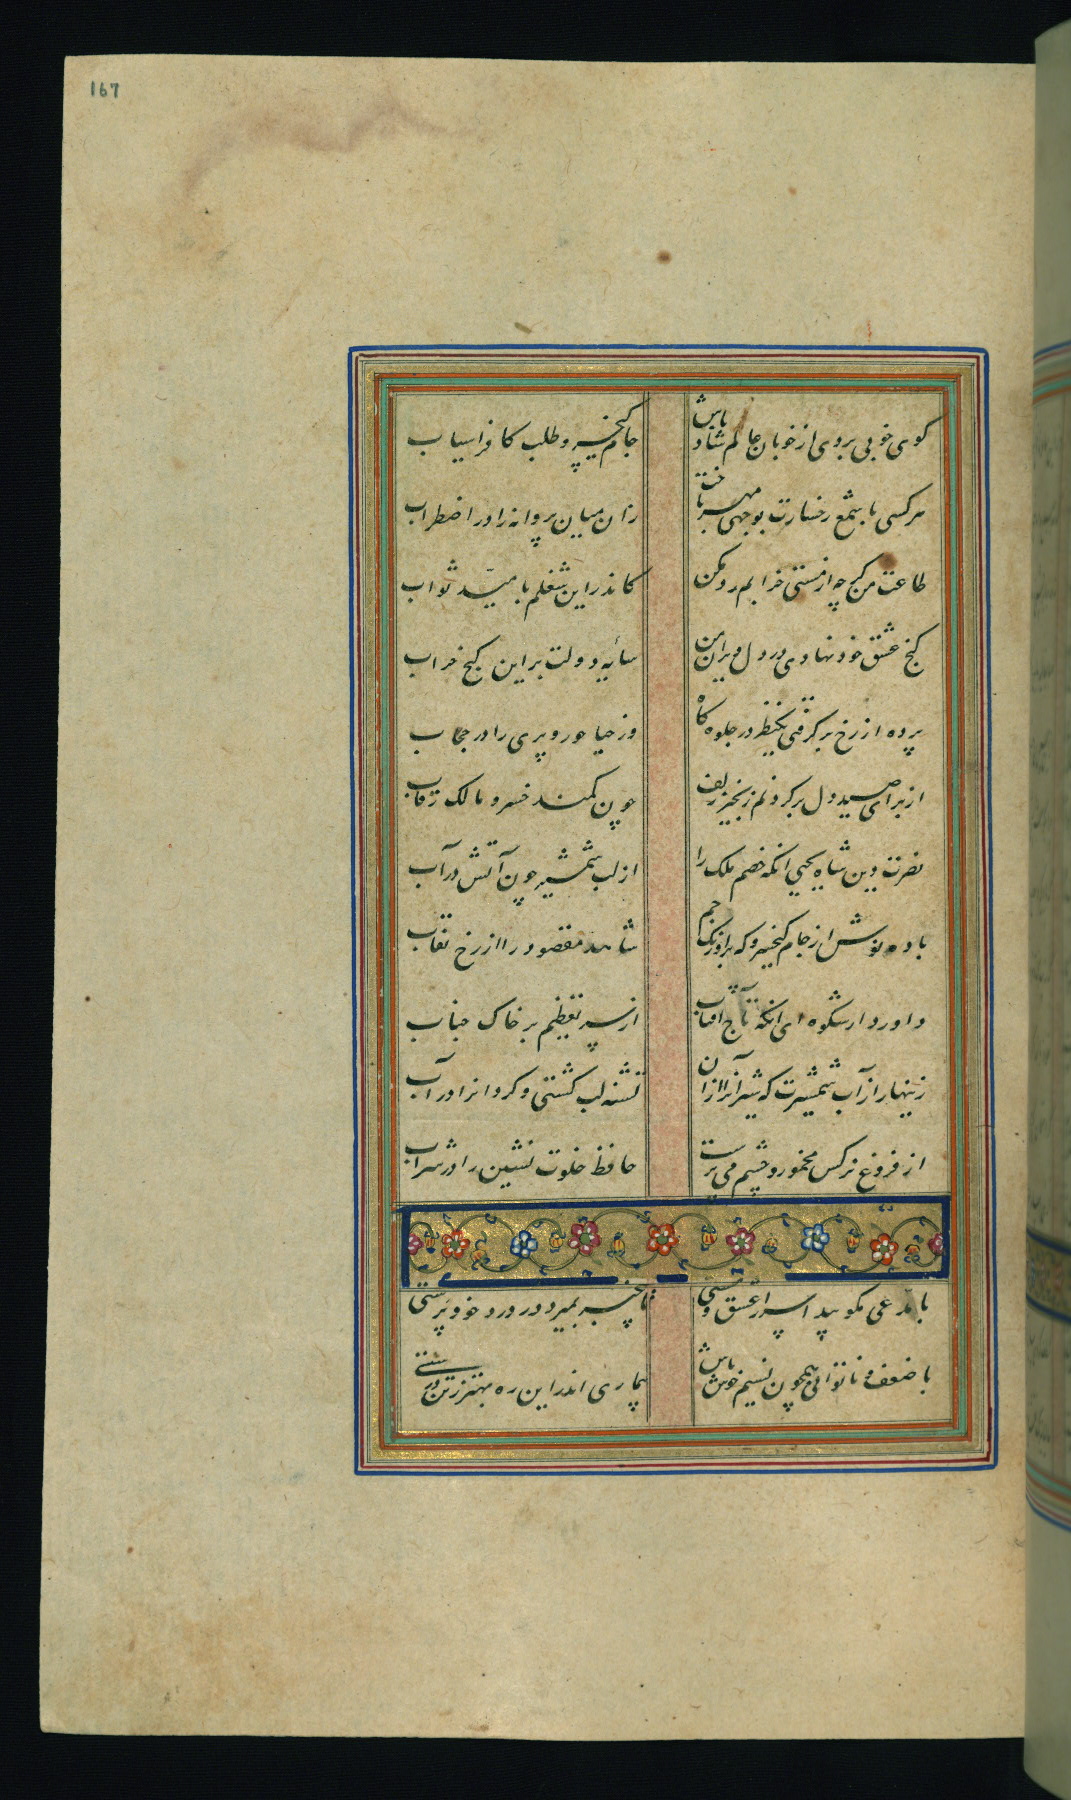 167
کوی خوبی بردی از خوبان عالم شاد باش جام کیخسرو طلب کافراسیاب
هر کسی با شمع رخسارت بوجهی مهر باخت زان میان پروانه را در اضطراب
طاعت من کرچه از مستی خرابم رد مکن کاندر این شغلم بامید ثواب
کنج عشق خود نهادی در دل ویران من سایه دولت بر این کنج خراب
پرده از رخ برکرفتی یکنظر در جلوه کاه وز حیا حور و پری را در حجاب
از برای صید دل بر کردنم زنجیر زلف چون کمند خسرو مالک رقاب
نصرت دین شاه یحیی انکه خصم ملک را از لب شمشیر چون آتش در آب
باده نوش از جام کیخسرو که بر اورنک جم شاهد مقصود را از رخ نقاب
داور دارا شکوه ای انکه تاج افتاب از سر تعظیم بر خاک جناب
زینهار از آب شمشیرت که شیرانرا از ان تشنه لب کشتی و کردانرا در آب
از فروغ نرکس مخمور و چشم می پرست حافظ خلوت نشین را در شراب
با مدعی مکویید اسرار عشق و مستی تا بیخبر بمیرد در درد خود پرستی
با ضعف و ناتوانی همچون نسیم خوش باش بیماری اندر این ره بهتر ز تن درستی